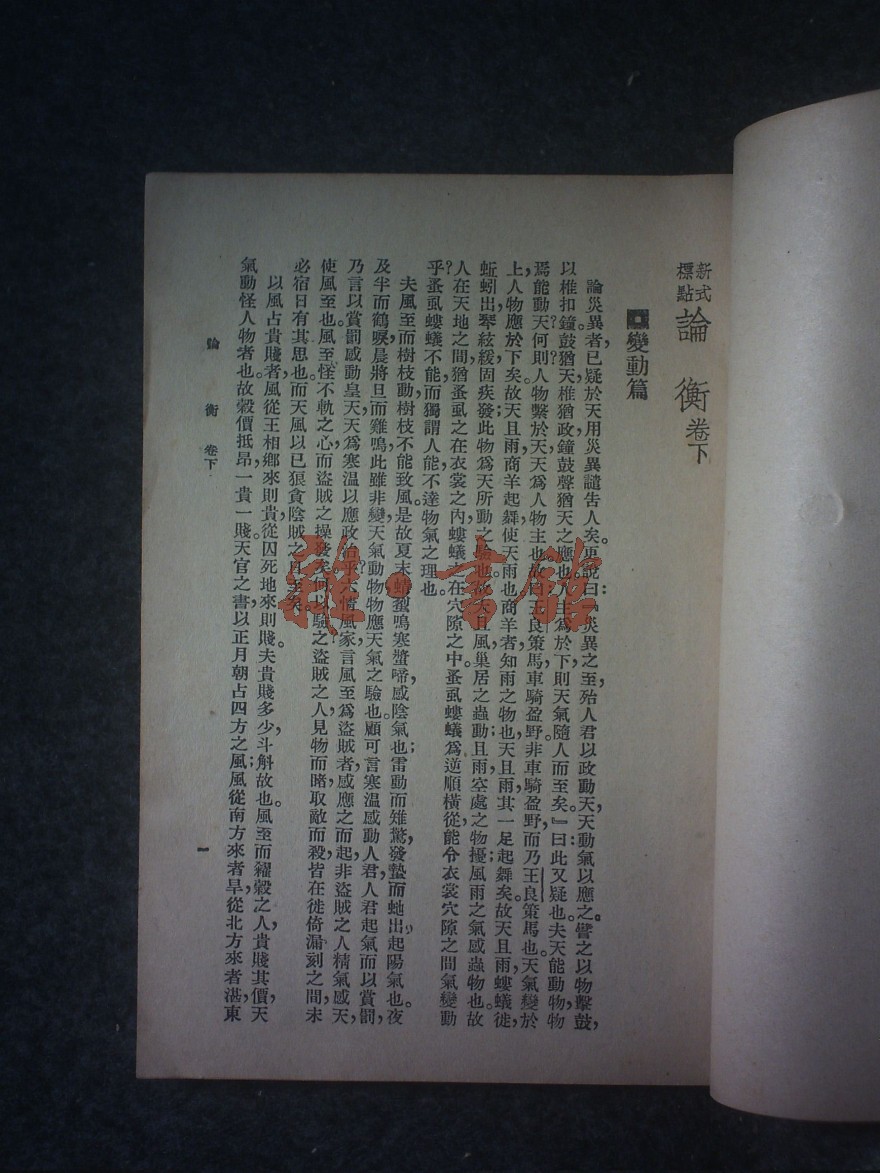 新式標點 論衡 卷下
變動篇
論災異者，已疑於天用災異譴告人矣。更說曰：『災異之至，殆人君以政動天，天動氣以應之。譬之以物擊鼓，
以椎扣鐘，鼓猶天，椎猶政，鐘鼓聲猶天之應也。人主爲於下，則天氣隨人而至矣。』曰：此又疑也。夫天能動物，物
焉能動天？何則？人物繫於天，天爲人物主也。故曰：王良策馬，車騎盈野。非車騎盈野，而乃王良策馬也。天氣變於
上，人物應於下矣。故天且雨，商羊起舞，使天雨也。商羊者，知雨之物也，天且雨，其一足起舞矣。故天且雨，螻蟻徙，
蚯蚓出，琴絃緩，固疾發，此物爲天所動之驗也。故天且風，巢居之蟲動；且雨，穴處之物擾；風雨之氣感蟲物也。故
人在天地之間，猶蚤虱之在衣裳之內，螻蟻之在穴隙之中。蚤虱螻蟻爲逆順橫從，能令衣裳穴隙之間氣變動
乎？蚤虱螻蟻不能，而獨謂人能，不達物氣之理也。
夫風至而樹枝動，樹枝不能致風。是故夏末蜻蛚鳴，寒螿啼，感陰氣也；雷動而雉驚，發蟄而虵出，起陽氣也。夜
及半而鶴唳，晨將旦而雞鳴，此雖非變，天氣動物，物應天氣之驗也。顧可言寒温感動人君，人君起氣而以賞罰，
乃言以賞罰感動皇天，天爲寒温以應政治乎？六情風家言風至爲盜賊者，感應之而起，非盜賊之人精氣感天，
使風至也。風至怪不軌之心，而盜賊之操發矣。何以驗之？盜賊之人，見物而暗，取敵而殺，皆在徙倚漏刻之間，未
必宿日有其思也。而天風以已狼貪陰賊之日至矣。
以風占貴賤者，風從王相鄉來則貴，從囚死地來則賤。夫貴賤多少，斗斛故也。風至而糴穀之人，貴賤其價，天
氣動怪人物者也。故穀價抵昂，一貴一賤。天官之書，以正月朝占四方之風；風從南方來者旱，從北方來者湛，東
論衡 卷下
一
雜·書館